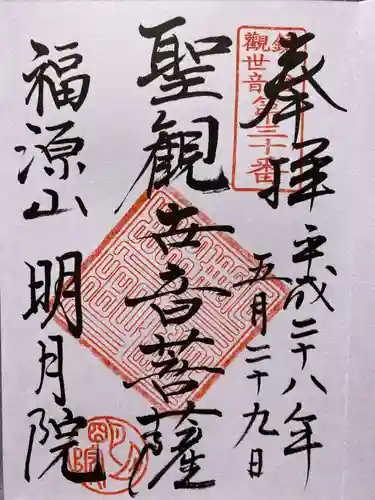 奉拝
平成二十八年
五月二十九日
観世音第三十番
聖観世音菩薩
福源山
明月院